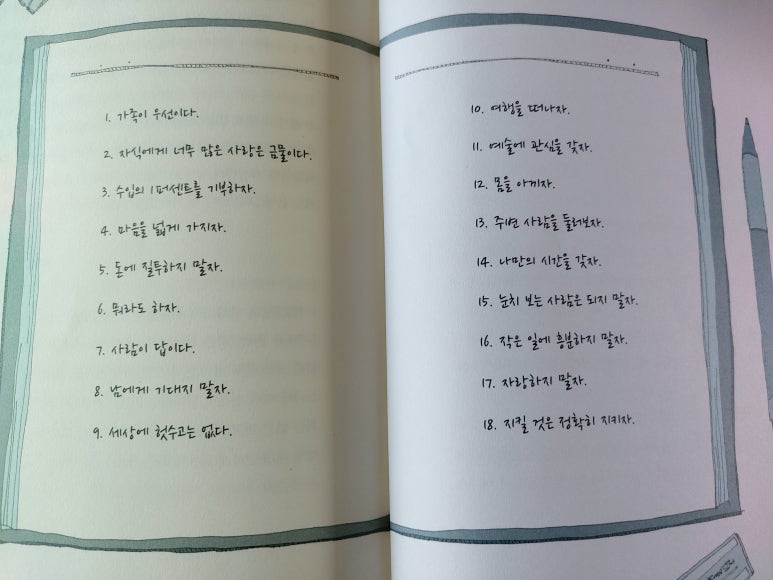 1. 가족이 우선이다.
2. 자식에게 너무 많은 사랑은 금물이다.
3. 수입의 1퍼센트를 기부하자.
4. 마음을 넓게 가지자.
5. 돈에 질투하지 말자.
6. 뭐라도 하자.
7. 사람이 답이다.
8. 남에게 기대지 말자.
9. 세상에 헛수고는 없다.
10. 여행을 떠나자.
11. 예술에 관심을 갖자.
12. 몸을 아끼자.
13. 주변 사람을 둘러보자.
14. 나만의 시간을 갖자.
15. 눈치 보는 사람은 되지 말자.
16. 작은 일에 흥분하지 말자.
17. 자랑하지 말자.
18. 지킬 것은 정확히 지키자.